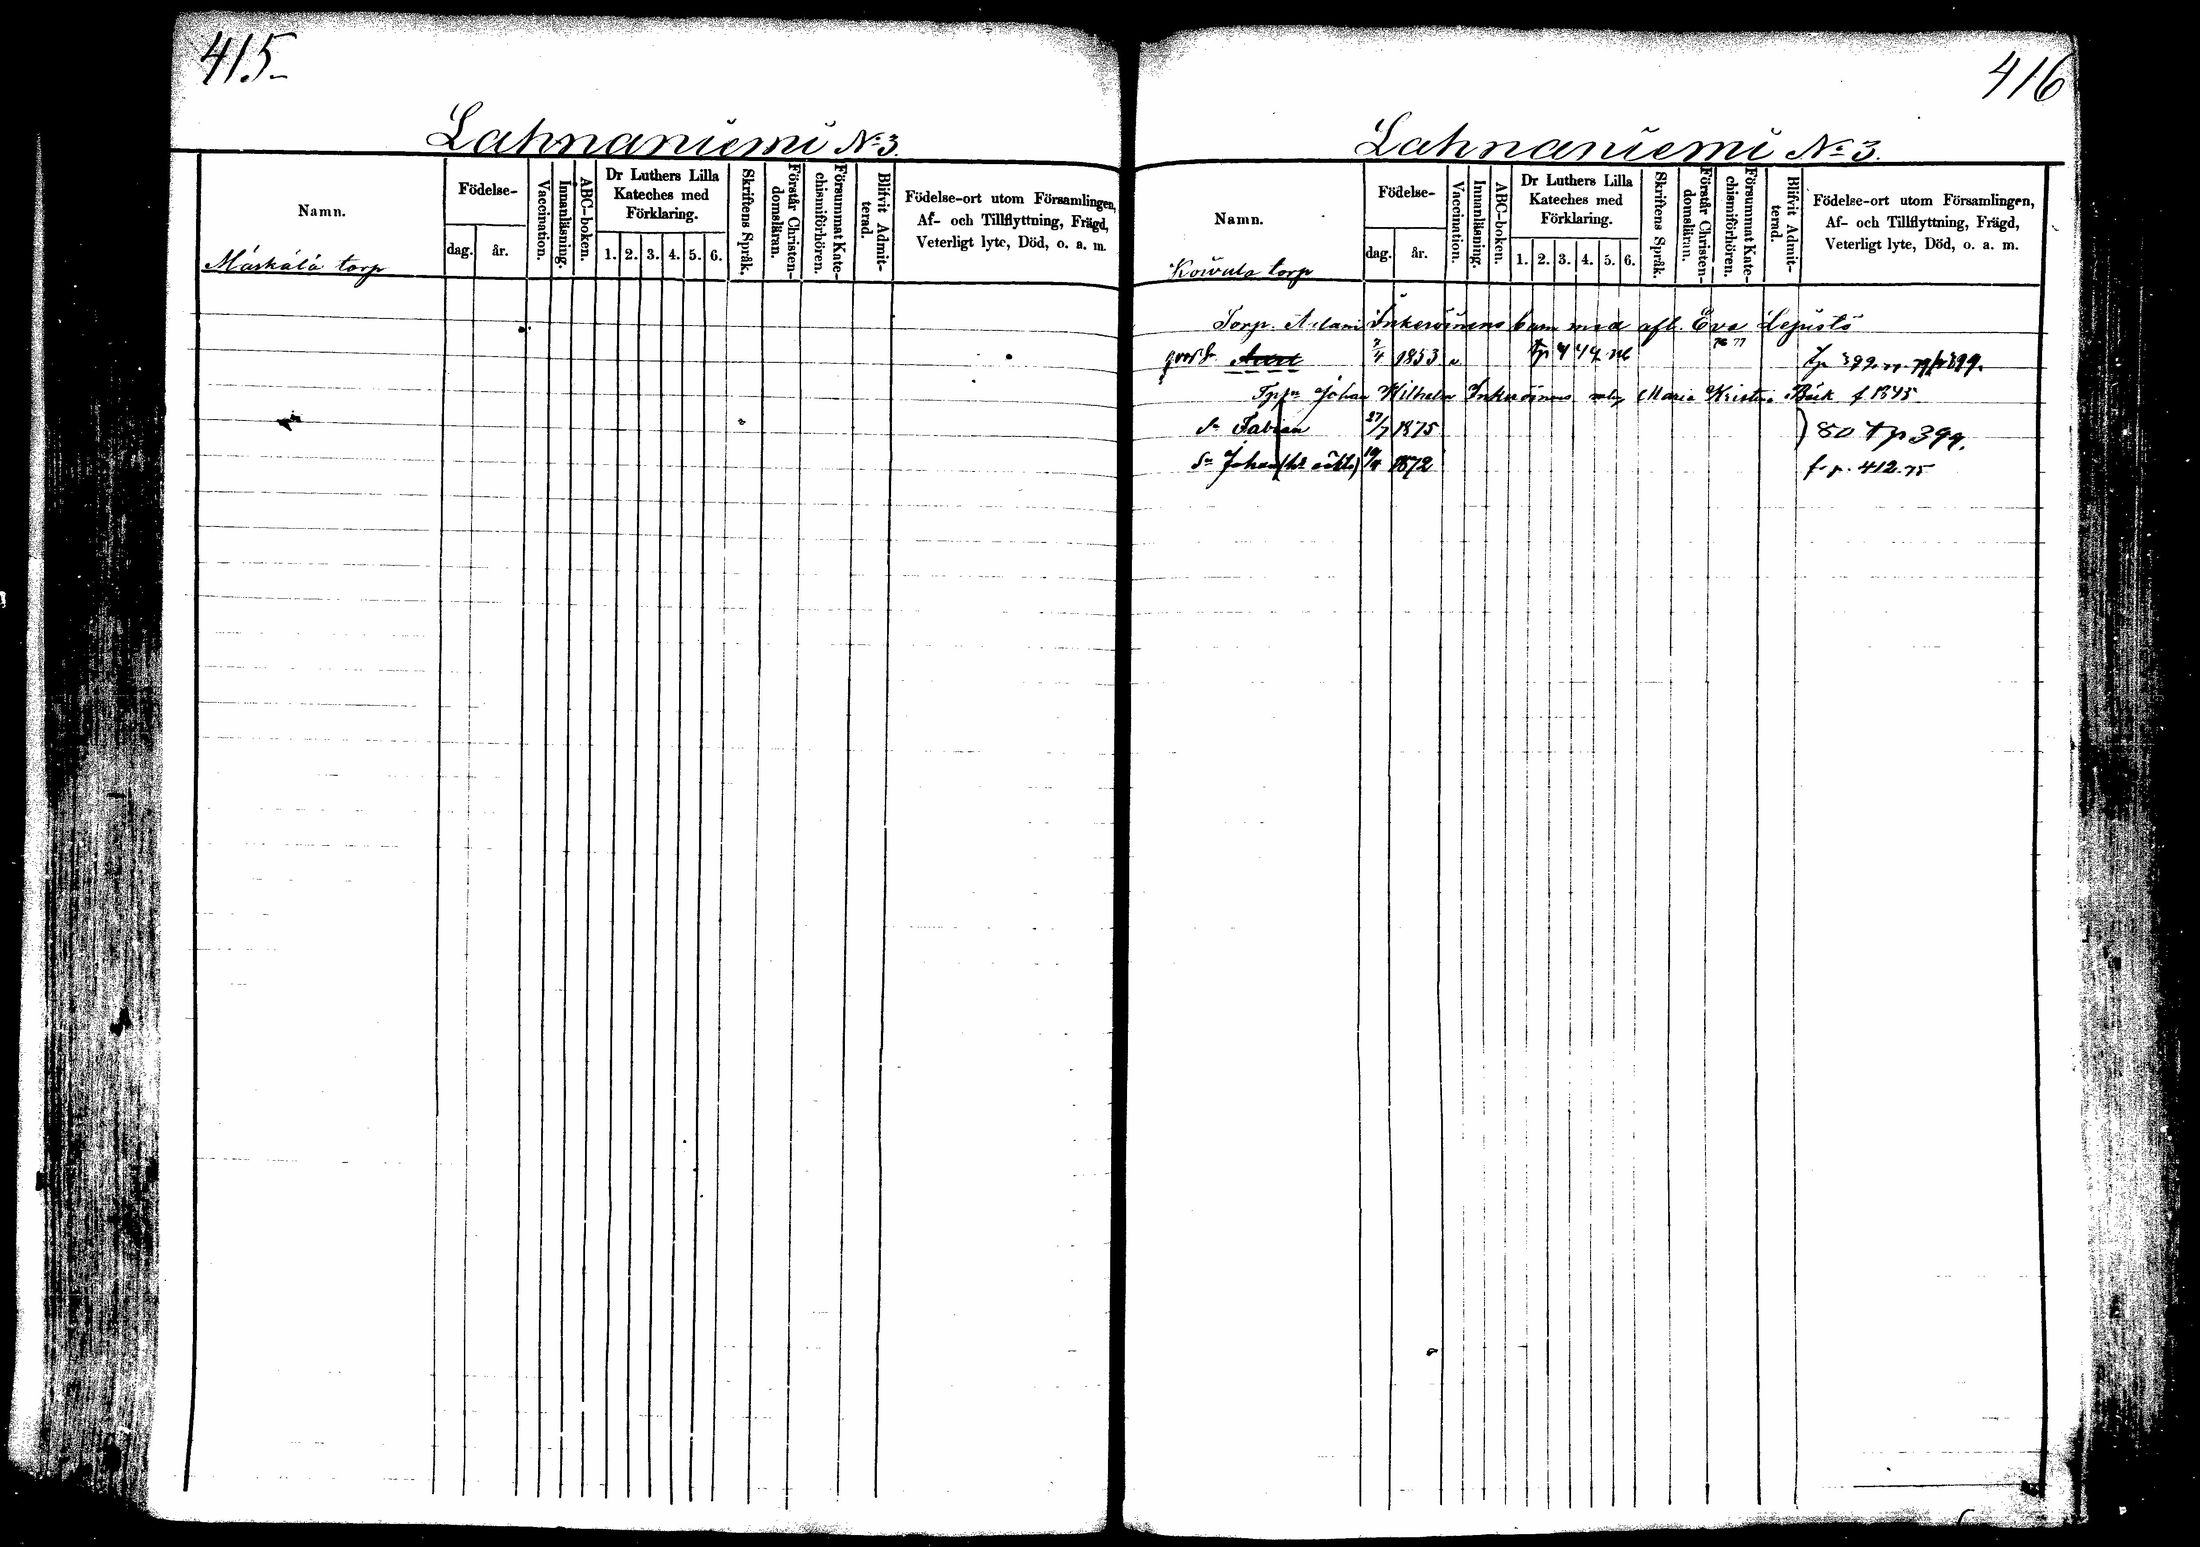 415
Lahnaniemi No 3.
Namn.
Födelse-
dag.
år.
Vaccination.
Innanläsning.
ABC-boken.
Dr Luthers Lilla
Kateches med
Förklaring.
1. 2. 3. 4. 5. 6.
Skriftens Språk.
Förstår Christen-
domsläran.
Försummat Kate-
chismiförhören.
Blifvit Admit-
terad.
Födelse-ort utom Församlingen,
Af- och Tillflyttning, Frägd,
Veterligt lyte, Död, o. a. m.
Máskálá torp
416
Lahnaniemi No 3.
Namn.
Födelse-
dag.
år.
Vaccination.
Innanläsning.
ABC-boken.
Dr Luthers Lilla
Kateches med
Förklaring.
1. 2. 3. 4. 5. 6.
Skriftens Språk.
Förstår Christen-
domsläran.
Försummat Kate-
chismiförhören.
Blifvit Admit-
terad.
Födelse-ort utom Församlingen,
Af- och Tillflyttning, Frägd,
Veterligt lyte, Död, o. a. m.
Koivula torp
Torp. Adam Inkeroinens barn med afl. Eva Lepistö
76 77
1853
Johan Wilhelm Inkeroinens Maria Kristina Bäck f 1845
Sn Fabian 27/7 1875 80 t p 399.
Sn Johan 1872 f. p. 412. 75